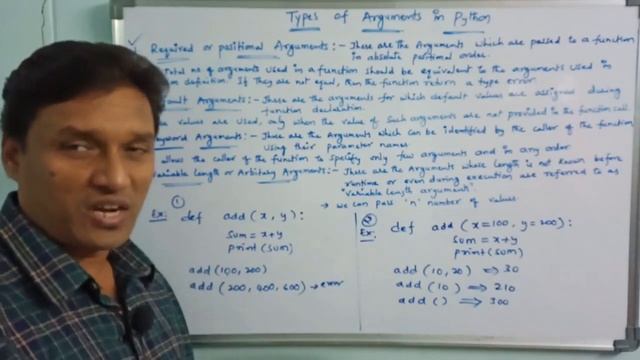 Types of Arguments in Python
Required or positional Arguments :- These are the Arguments which are passed to a function
in absolute positional order.
Total no of arguments used in a function should be equivalent to the arguments used in
definition. If they are not equal, then the function return a type error.
Arguments :- These are the arguments for which default values are assigned during
function declaration.
values are used, only when the value of such arguments are not provided in the function call
Arguments :- These are the Arguments which can be identified by the caller of the function
using their parameter names
allows the caller of the function to specify only few arguments and in any order.
Variable length or Arbitary Arguments :- These are the Arguments whose length is not known before
runtime or even during execution are referred to as
"variable length arguments".
→ we can pass 'n' number of values
Ex: ① def add (x, y) :
sum = x+y
print (sum)
add (100, 200)
add (200, 400, 600) → error
② Ex: def add (x=100, y=200) :
sum = x+y
print (sum)
add (10, 20) ⇒ 30
add (10) ⇒ 210
add () ⇒ 300